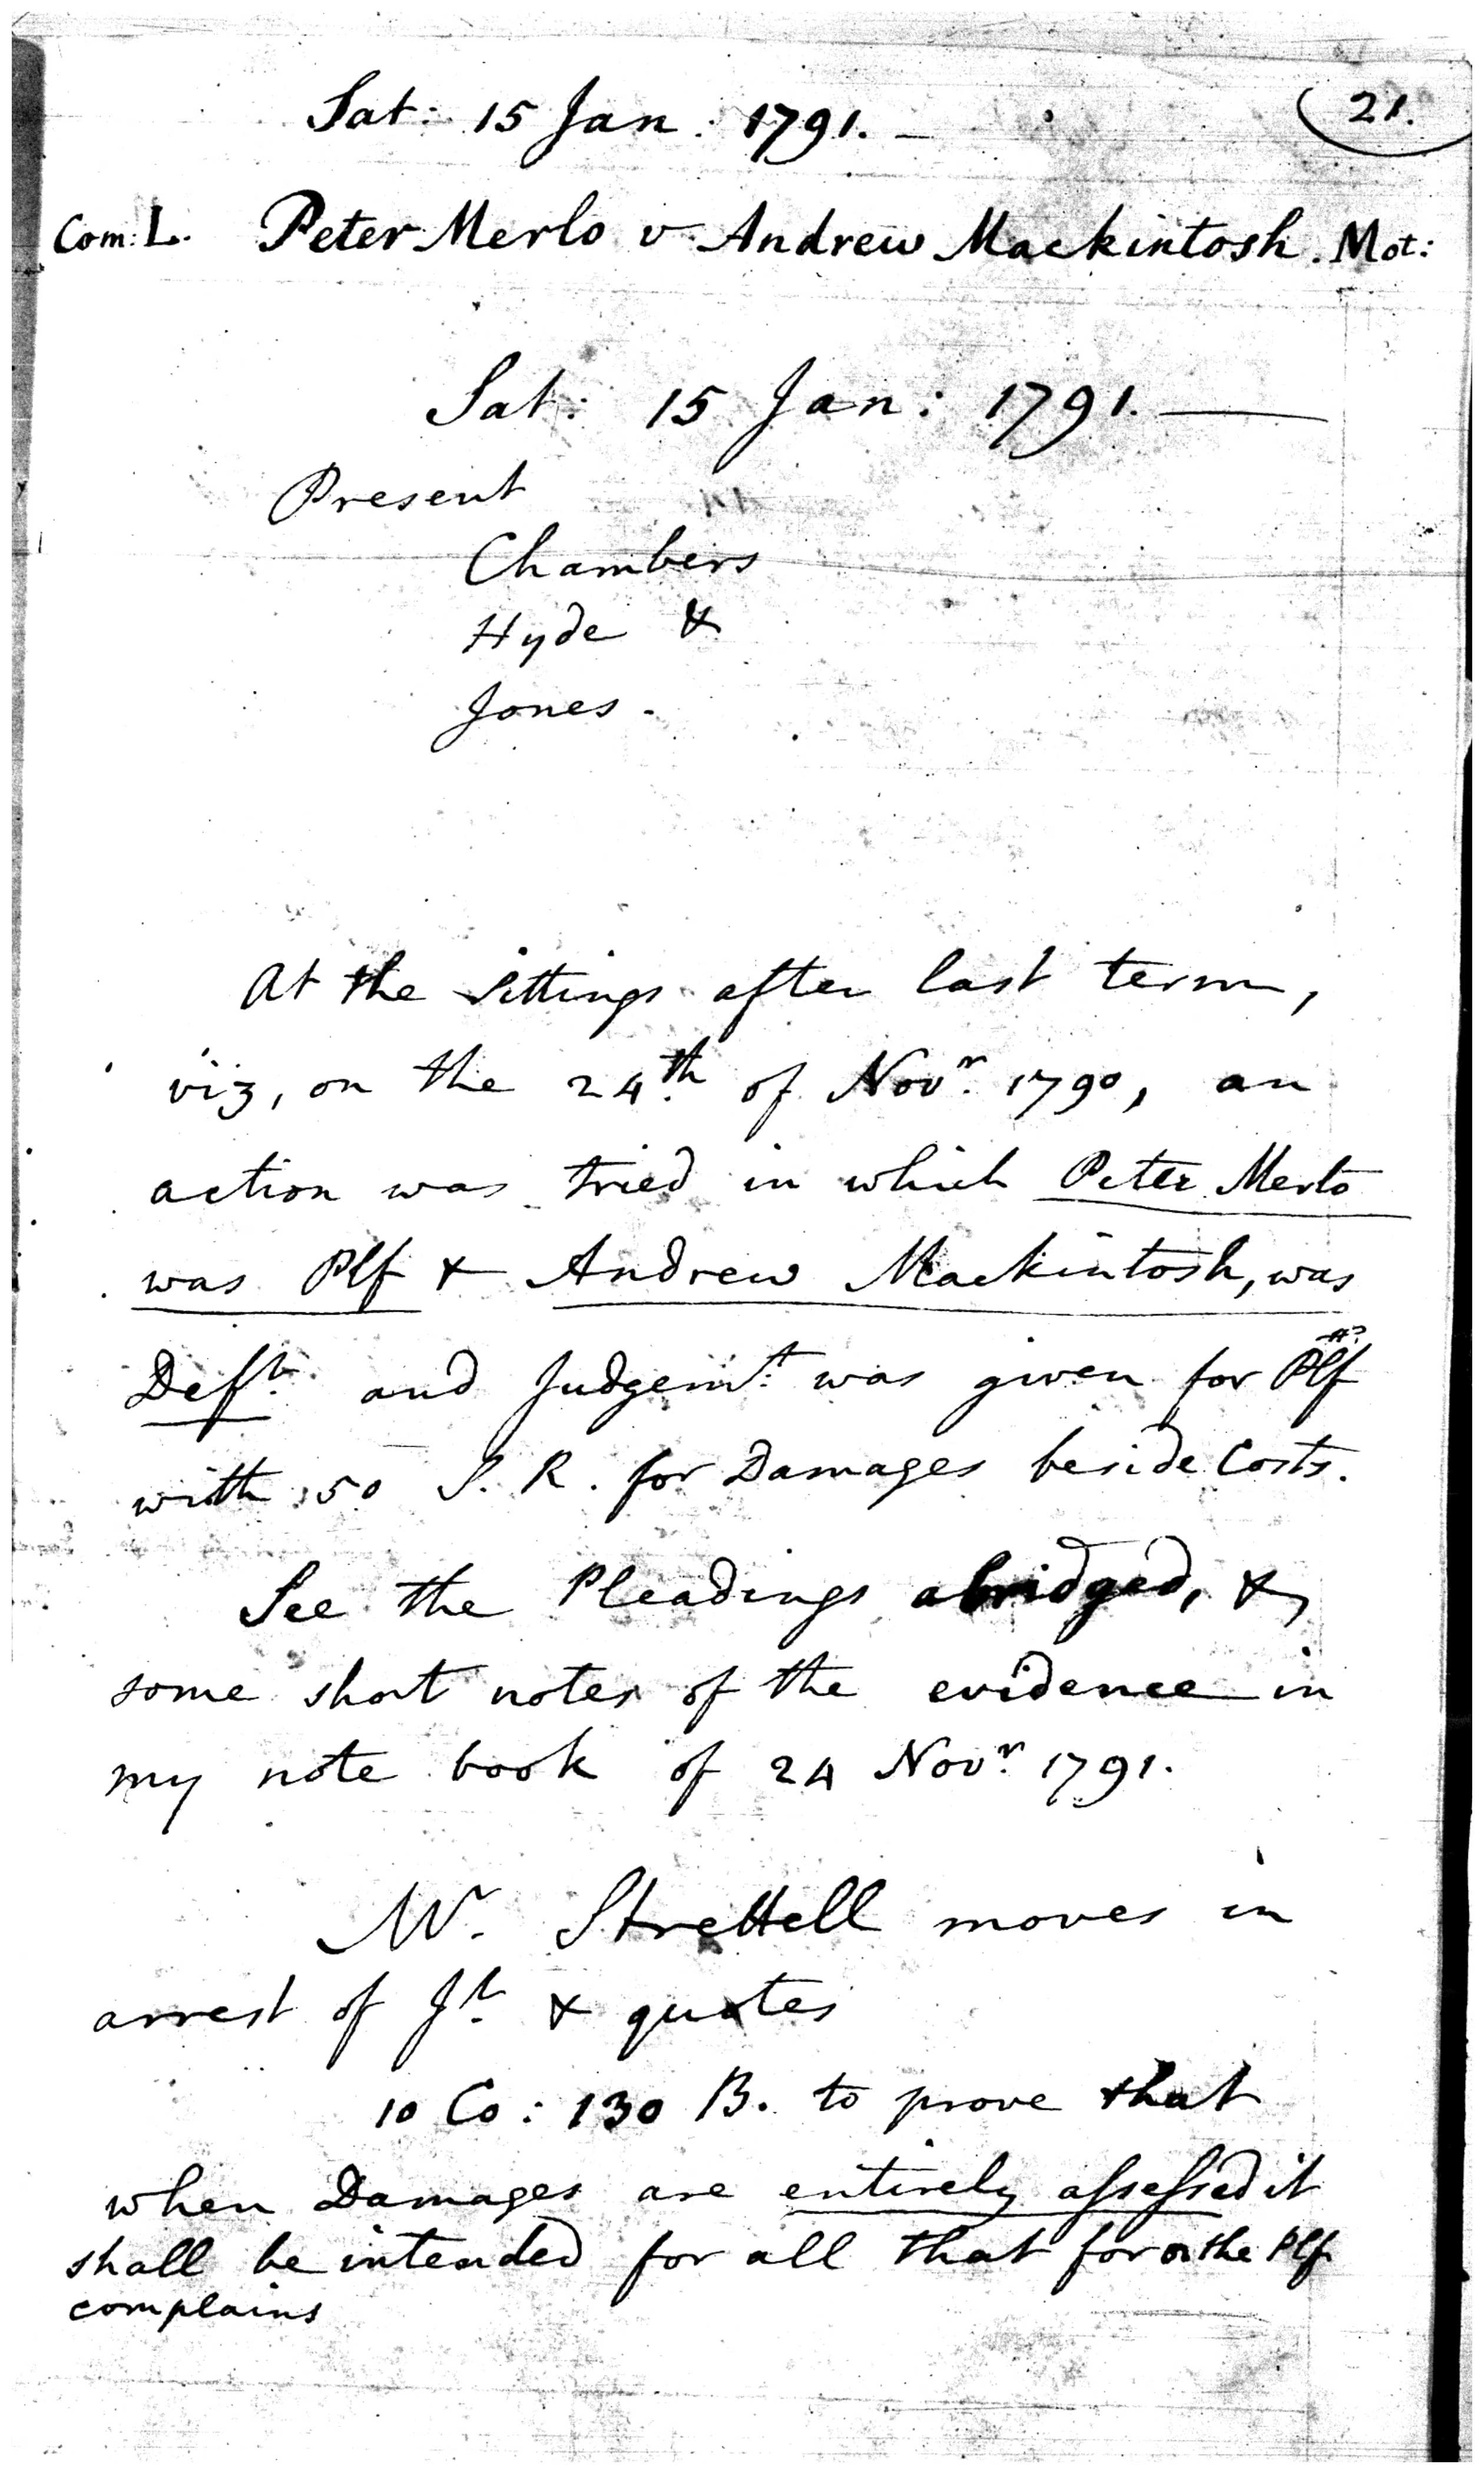 Sat: 15 Jan: 1791. —
21.
Com: L. Peter Merlo v Andrew Mackintosh. Mot:
Sat: 15 Jan: 1791. —
Present
Chambers
Hyde &
Jones.
At the Sittings after last term,
viz, on the 24th of Novr. 1790, an
action was tried in which Peter Merlo
was Plf & Andrew Mackintosh, was
Deft. and Judgemt. was given for Plf
with 50 S. R. for Damages beside Costs.
See the Pleadings abridged, &
some short notes of the evidence in
my note book of 24 Novr. 1791.
Mr. Strettell moves in
arrest of Jt. & quotes
10 Co: 130 B. to prove that
when Damages are entirely assessed it
shall be intended for all that for the Plf
complains